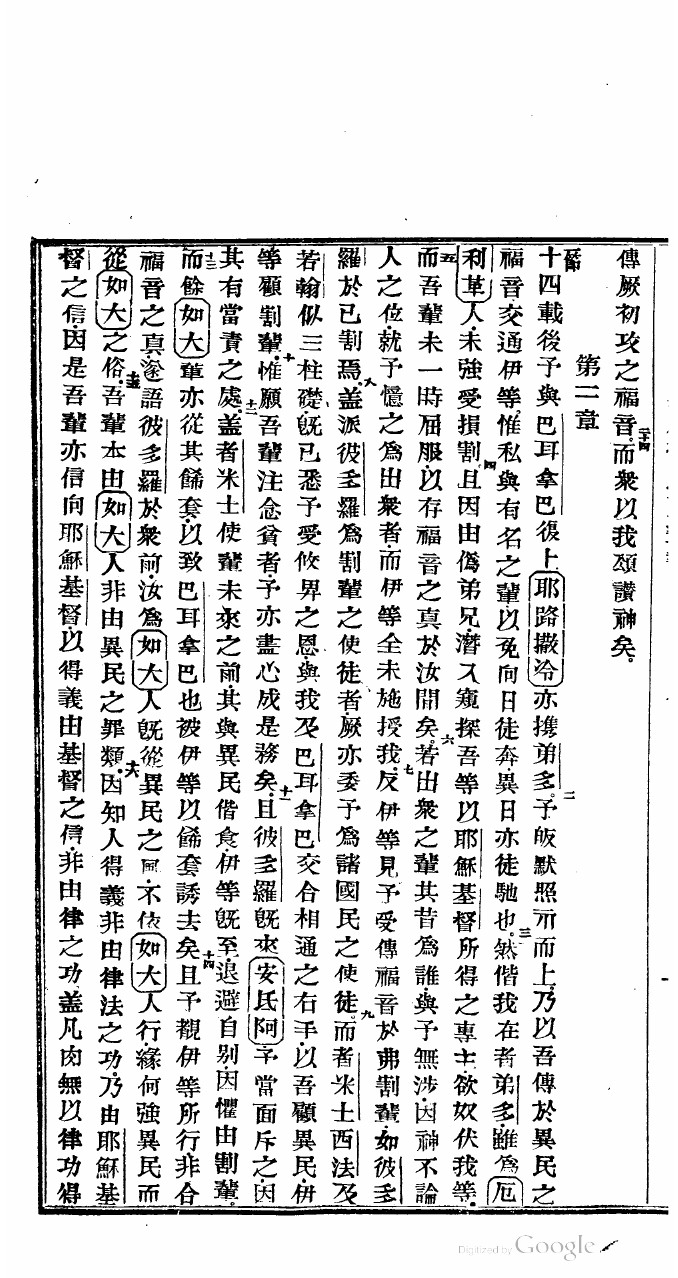 傳厥初攻之福音。二十四而衆以我頌讚神矣。
第二章
十四載後予與巴耳拿巴復上耶路撒冷亦携弟多。二予皈默照示而上乃以吾傳於異民之
福音交通伊等。惟私與有名之輩以免向日徒奔異日亦徒馳也。三然偕我在者弟多雖爲厄
利革人未強受損割。四且因由僞弟兄潛入窺探吾等以耶穌基督所得之專主欲奴伏我等。
五而吾輩未一時屈服以存福音之真於汝間矣。六若出衆之輩其昔爲誰與予無涉因神不論
人之位就予憶之爲出衆者而伊等全未施授我。七反伊等見予受傳福音於弗割輩如彼多
羅於已割焉。八盖派彼多羅爲割輩之使徒者厥亦委予爲諸國民之使徒。九而者米士西法及
若翰似三柱礎既已悉予受攸畀之恩與我及巴耳拿巴交合相通之右手以吾顧異民伊
等顧割輩。十惟願吾輩注念貧者予亦盡心成是務矣。十一且彼多羅既來安氐阿予當面斥之因
其有當責之處。十二盖者米士使輩未來之前其與異民偕食伊等既至退避自别因懼由割輩。
十三而餘如大輩亦從其餙套以致巴耳拿巴也被伊等以餙套誘去矣。十四且予覩伊等所行非合
福音之真遂語彼多羅於衆前汝爲如大人既從異民之風不依如大人行緣何強異民而
從如大之俗。十五吾輩本由如大人非由異民之罪類。十六因知人得義非由律法之功乃由耶穌基
督之信因是吾輩亦信向耶穌基督以得義由基督之信非由律之功盖凡肉無以律功得
Digitized by Google